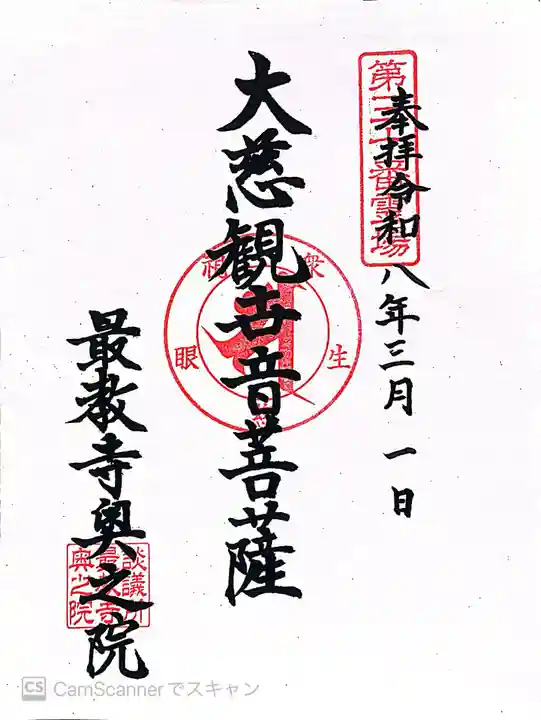 奉拝令和八年三月一日
大慈観世音菩薩
最教寺奥之院
衆
生
眼
視
談議所
最教寺
奥之院
CS CamScannerでスキャン